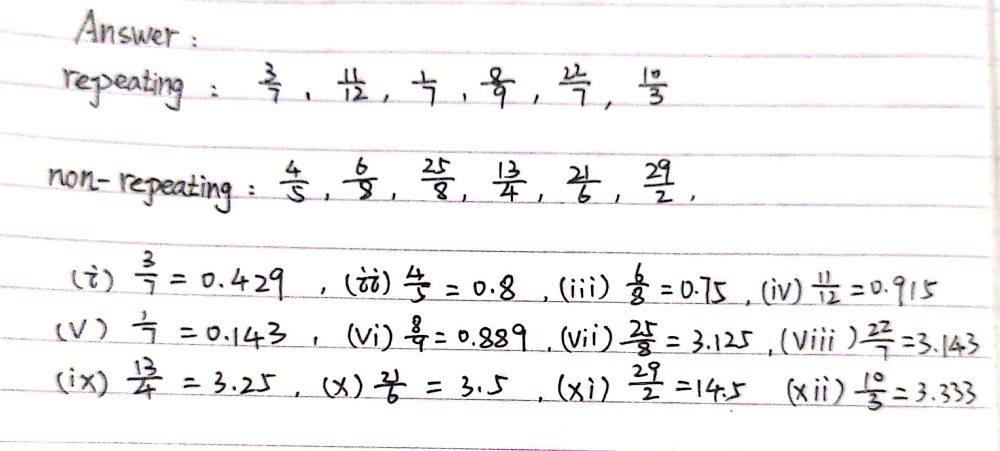 Answer :
repeating : 3/7 , 11/12 , 1/7 , 8/9 , 22/7 , 10/3
non-repeating : 4/5 , 6/8 , 25/8 , 13/4 , 21/6 , 29/2 ,
(i) 3/7 = 0.429 , (ii) 4/5 = 0.8 , (iii) 6/8 = 0.75 , (iv) 11/12 = 0.915
(V) 1/7 = 0.143 , (Vi) 8/9 = 0.889 , (Vii) 25/8 = 3.125 , (Viii) 22/7 = 3.143
(ix) 13/4 = 3.25 , (x) 21/6 = 3.5 , (xi) 29/2 = 14.5 (xii) 10/3 = 3.333